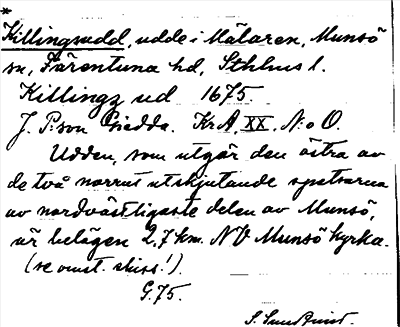 *
Killingsudd, udde i Mälaren, Munsö
sn, Färentuna hd, Sthlms l.
Killingz ud 1675.
J. P:son Gädda. Kr A, XX. N:o O.
Udden, som utgör den östra av
de två norrut utskjutande spetsarna
av nordvästligaste delen av Munsö,
är belägen 2,7 km. NV Munsö kyrka.
(se omst. skiss!).
G. 75.
S.